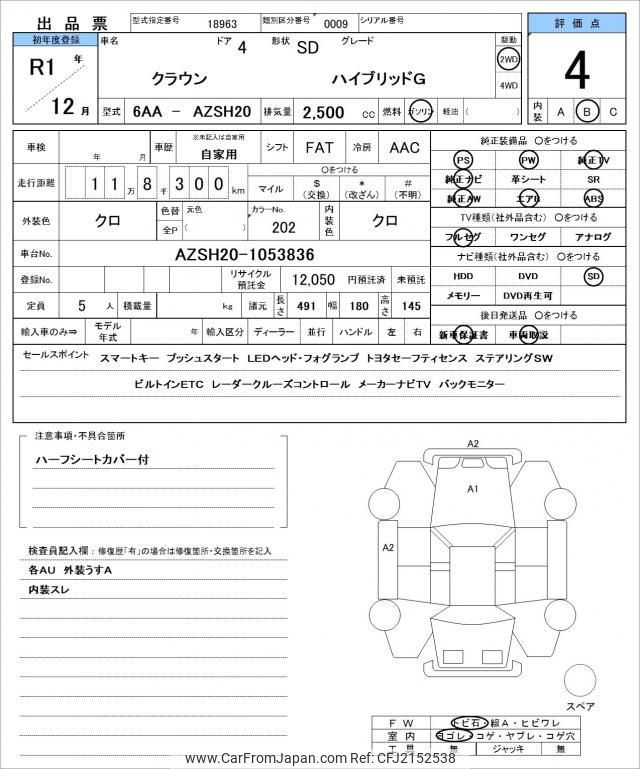 出 品 票
型式指定番号 18963 類別区分番号 0009 シリアル番号
初年度登録 車名 ドア 4 形状 SD グレード 駆動
R1 年 12 月
クラウン ハイブリッドG
2WD
4WD
型式 6AA － AZSH20 排気量 2,500 cc 燃料 ガソリン ・ 軽油 ・ ( )
評 価 点
4
内装 A B C
車検 年 月 車歴 ※未記入は自家用 自家用 シフト FAT 冷房 AAC
走行距離 1 1 万 8 千 3 0 0 km
〇をつける
マイル $ (交換) * (改ざん) # (不明)
外装色 クロ 色替 全P 元色 ( ) カラーNo. 202 内装色 クロ
車台No. AZSH20-1053836
登録No. リサイクル預託金 12,050 円預託済 未預託
定員 5 人 積載量 kg 諸元 長さ 491 幅 180 高さ 145
輸入車のみ⇒ モデル年式 年 輸入区分 ディーラー 並行 ハンドル 左 右
純正装備品 〇をつける
PS PW 純正TV
純正ナビ 革シート SR
純正AW エアB ABS
TV種類(社外品含む) 〇をつける
フルセグ ワンセグ アナログ
ナビ種類(社外品含む) 〇をつける
HDD DVD SD
メモリー DVD再生可
後日発送品 〇をつける
新車保証書 車両取説
セールスポイント スマートキー プッシュスタート LEDヘッド・フォグランプ トヨタセーフティセンス ステアリングSW
ビルトインETC レーダークルーズコントロール メーカーナビTV バックモニター
注意事項・不具合箇所
ハーフシートカバー付
検査員記入欄：修復歴「有」の場合は修復箇所・交換箇所を記入
各AU 外装うすA
内装スレ
A2
A1
A2
スペア
F W トビ石・線A・ヒビワレ
室 内 ヨゴレ・コゲ・ヤブレ・コゲ穴
工 具 無 ジャッキ 無
www.CarFromJapan.com Ref: CFJ2152538